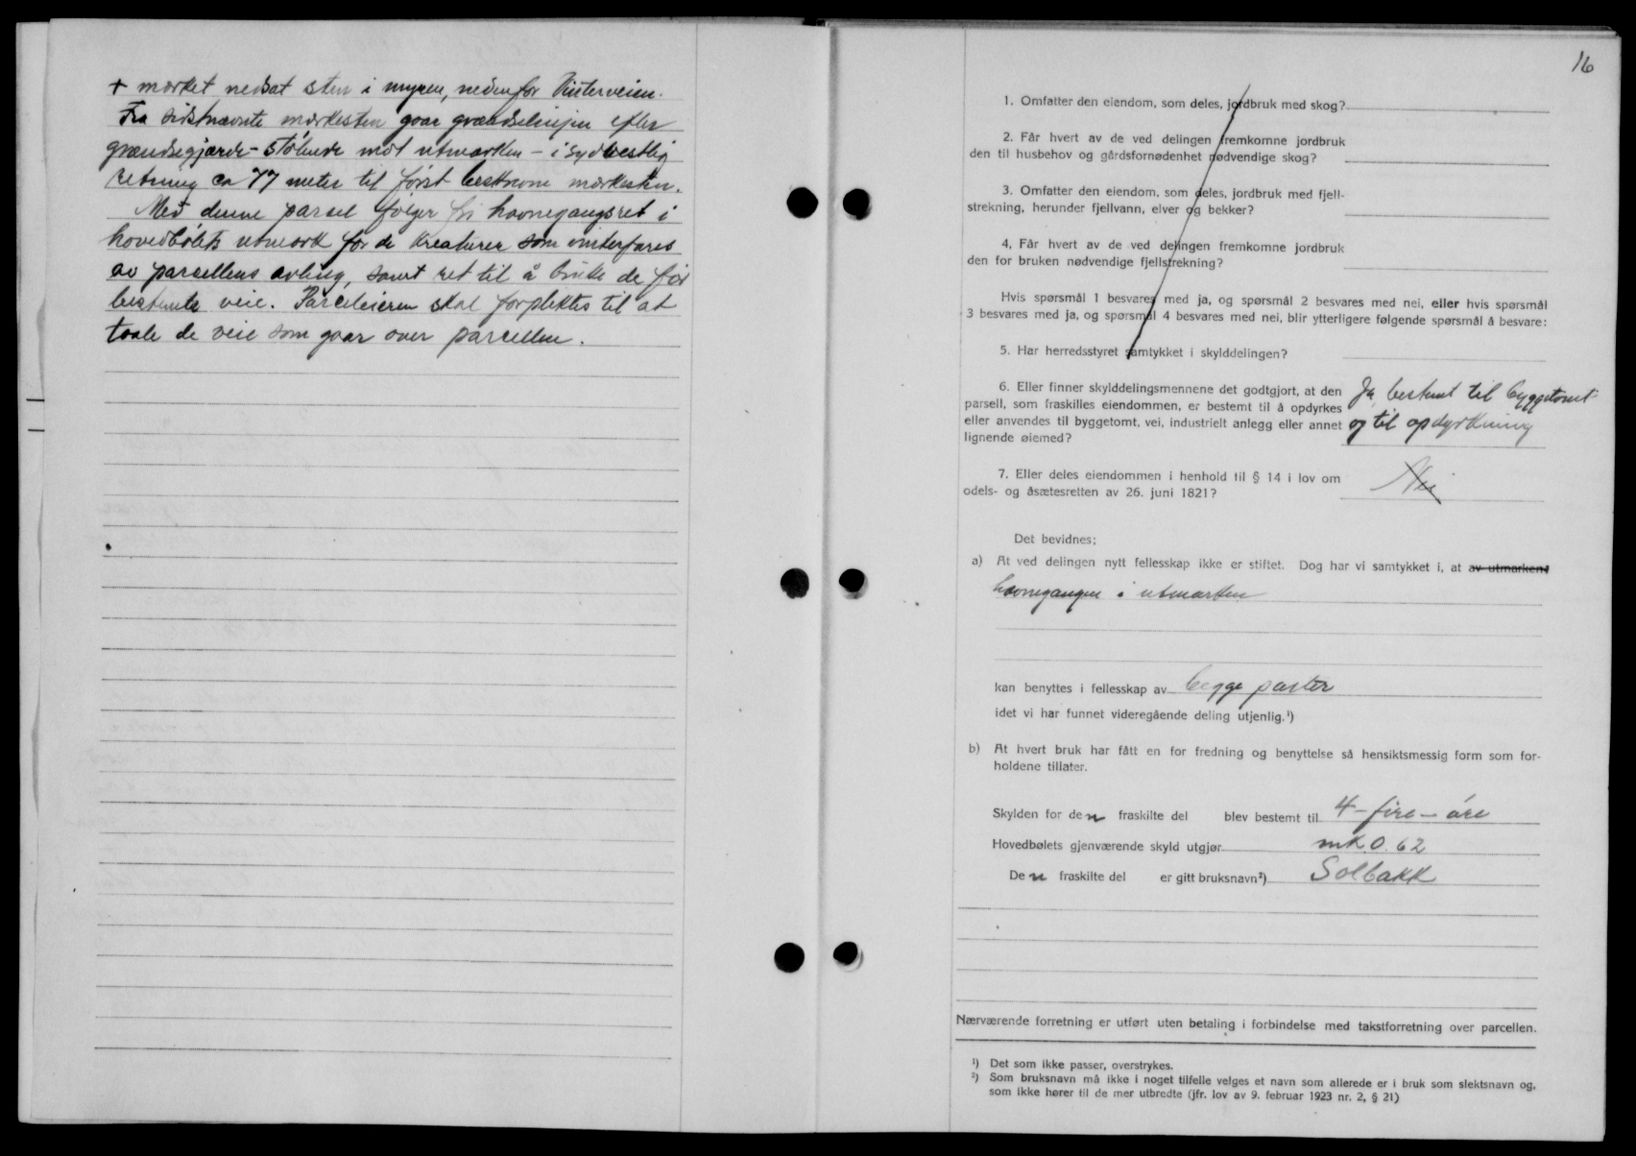 + mærket nedsat sten i myren, nedenfor Vinterveien.
Fra sidstnævnte mærkesten gaar grændselinjen efter
grændsegjærde - stående mot utmarken - i sydvestlig
retning ca 77 meter til først beskrevne mærkesten.
Med denne parsel følger fri havnegangsret i
hovedbølets utmark for de kreaturer som vinterfores
av parsellens avling, samt ret til å bruke de før
bestemte veie. Parceleieren skal forpliktes til at
taale de veie som gaar over parsellen.
16
1. Omfatter den eiendom, som deles, jordbruk med skog?
2. Får hvert av de ved delingen fremkomne jordbruk
den til husbehov og gårdsfornødenhet nødvendige skog?
3. Omfatter den eiendom, som deles, jordbruk med fjell-
strekning, herunder fjellvann, elver og bekker?
4. Får hvert av de ved delingen fremkomne jordbruk
den for bruken nødvendige fjellstrekning?
Hvis spørsmål 1 besvares med ja, og spørsmål 2 besvares med nei, eller hvis spørsmål
3 besvares med ja, og spørsmål 4 besvares med nei, blir ytterligere følgende spørsmål å besvare:
5. Har herredsstyret samtykket i skylddelingen?
6. Eller finner skylddelingsmennene det godtgjort, at den
parsell, som fraskilles eiendommen, er bestemt til å opdyrkes
eller anvendes til byggetomt, vei, industrielt anlegg eller annet
lignende øiemed?
Ja, bestemt til byggetomt
og til opdyrkning
7. Eller deles eiendommen i henhold til § 14 i lov om
odels- og åsætesretten av 26. juni 1821?
Nei
Det bevidnes:
a) At ved delingen nytt fellesskap ikke er stiftet. Dog har vi samtykket i, at av utmarkens
havnegangen i utmarken
kan benyttes i fellesskap av begge parter
idet vi har funnet videregående deling utjenlig.¹)
b) At hvert bruk har fått en for fredning og benyttelse så hensiktsmessig form som for-
holdene tillater.
Skylden for den fraskilte del blev bestemt til 4 - fire - øre
Hovedbølets gjenværende skyld utgjør mk. 0.62
Den fraskilte del er gitt bruksnavn²) Solbakk
Nærværende forretning er utført uten betaling i forbindelse med takstforretning over parcellen.
¹) Det som ikke passer, overstrykes.
²) Som bruksnavn må ikke i noget tilfelle velges et navn som allerede er i bruk som slektsnavn og,
som ikke hører til de mer utbredte (jfr. lov av 9. februar 1923 nr. 2, § 21)